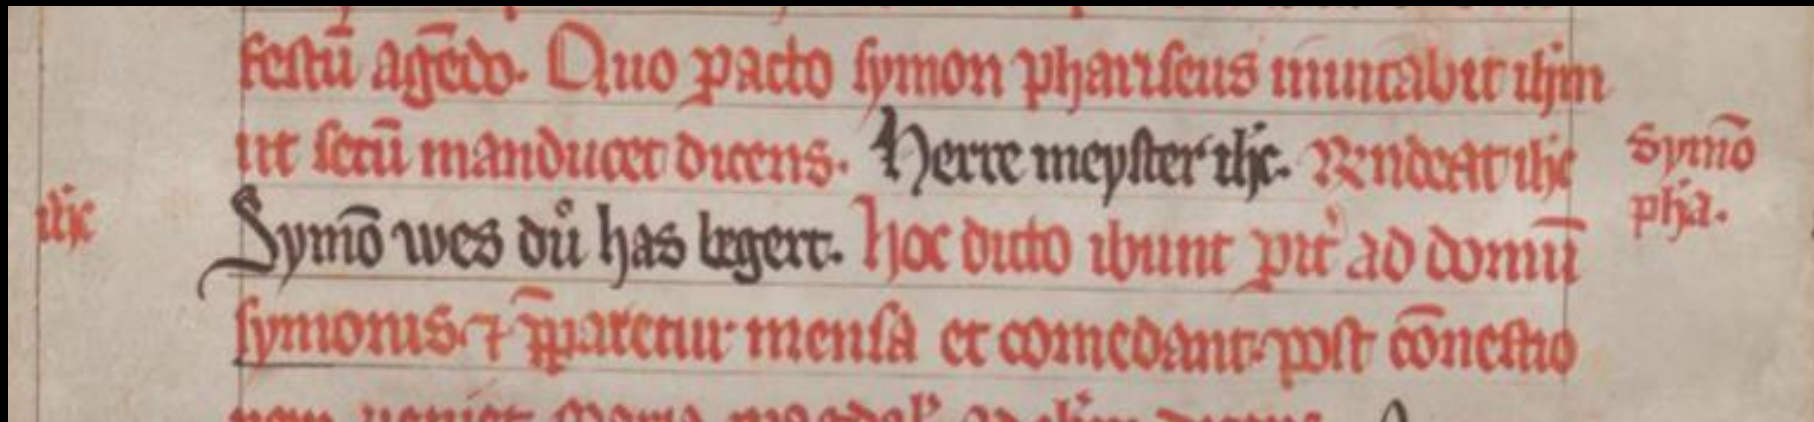 festū agēdo. Quo pacto symon phariseus inuitabit ihm
ut secū manducet dicens. Herre meyster ihc. Rndeat ihc
Symō
pha.
ihc
Symō wes dů has begert. hoc dicto ibunt pit ad domū
symonis ⁊ p̄paretur mensa et comedant. post cōmestio
nem ueniet maria